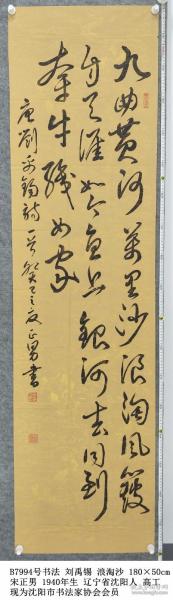 九曲黄河万里沙浪淘风簸
自天涯如今直上银河去同到
牵牛织女家
唐刘禹锡诗一首癸巳之夏正男书
B7994号书法 刘禹锡 浪淘沙 180×50cm
宋正男 1940年生 辽宁省沈阳人 高工
现为沈阳市书法家协会会员